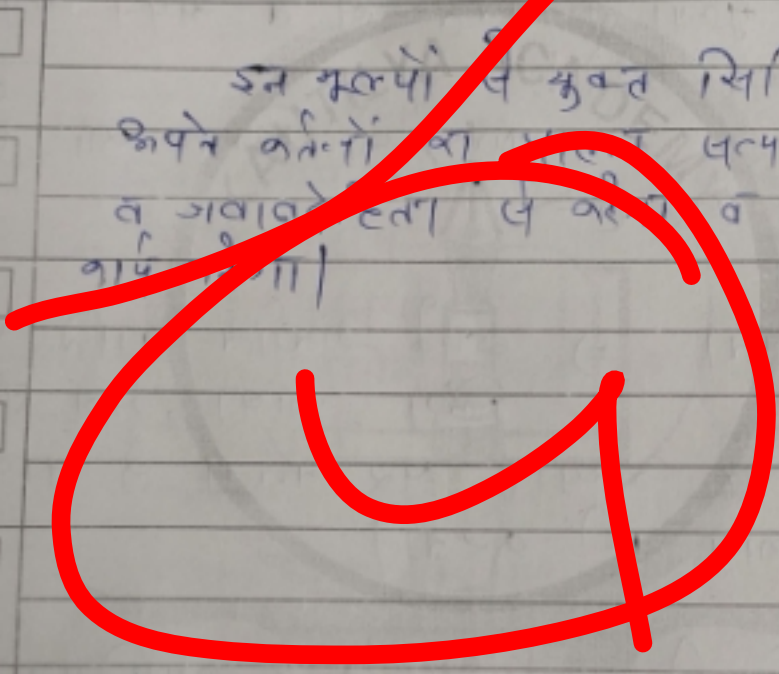 इन मूल्यों से युक्त सिवि
अपने कर्तव्यों का पालन सत्य
व जवाबदेहिता से करेगा व
कार्य करेगा।
4